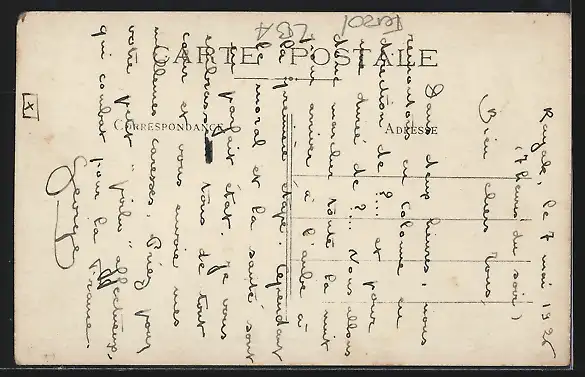 Rayak, le 7 mai 1926
(7 heures du soir)
Bien chers tous,
Dans deux heures, nous
remontons en colonne en
direction de ?... et pour
une durée de ?... Nous allons
donc marcher toute la nuit
pour arriver à l'aube à
la première étape. Cependant
le moral et la santé sont
en parfait état. Je vous
embrasse tous de tout
cœur et vous envoie mes
meilleures caresses. Priez pour
votre petit "poilu" affectueux,
qui combat pour la France.
George
CARTE POSTALE
CORRESPONDANCE
ADRESSE
X